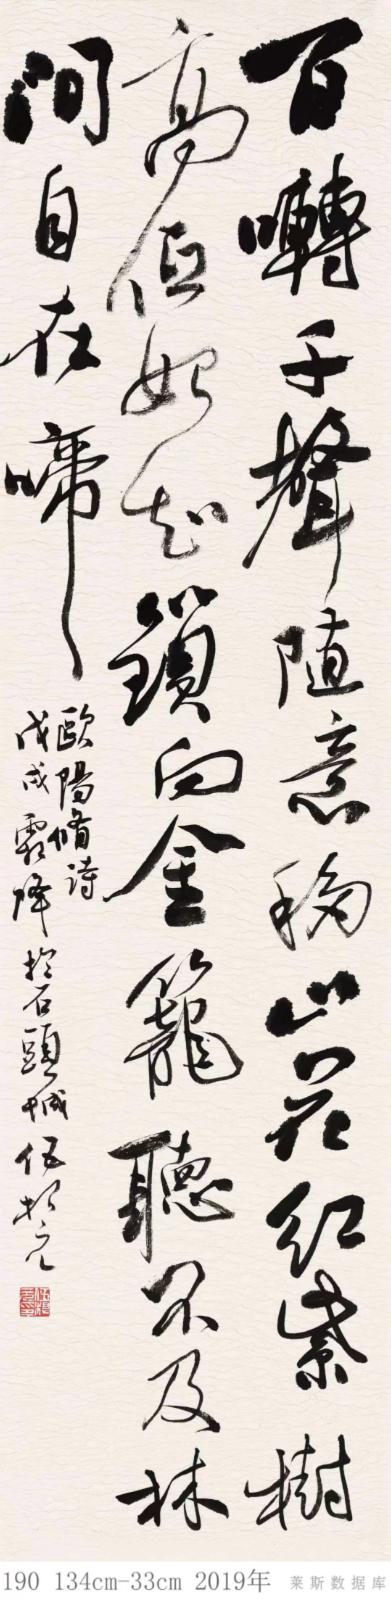 百囀千聲隨意移山花紅紫樹
高低始知鎖向金籠聽不及林
間自在啼
歐陽脩詩
戊戌霜降於石頭城伍
190 134cm-33cm 2019年 莱斯数据库